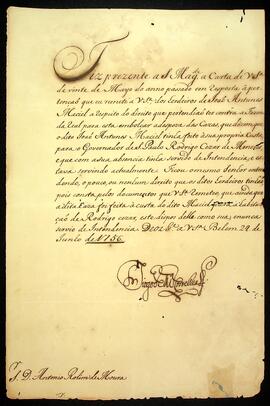 Fiz prezente a S. Mag.e a Carta de V. S.a
de vinte de Mayo do anno passado em resposta à que
tenção que eu remeti a V. S.a dos herdeiros de João Antunes
Maciel a respeito do direito que pertendião ter contra a Fazen
da Real para esta embolçar a despeza das Cazas, que diziam que
o dito João Antunes Maciel tinha feito à sua propria custa,
para o Governador de S. Paulo Rodrigo Cezar de Menezes
e que com a sua absencia tinha servido de Intendencia, e es
tava servindo actualmente. Ficou o mesmo Senhor enten
dendo, o pouco, ou nenhum direito que os ditos herdeiros tinhão
pois consta pelos documentos que V. S.a remeteo, que ainda que
a dita Caza foi feita à custa do dito Maciel para a habita
ção de Rodrigo Cezar, este dispos della como sua, e nunca
servio de Intendencia. Deos g.e a V. S.a Belem 29 de
Junho de 1756.
S. D. Antonio Rolim de Moura